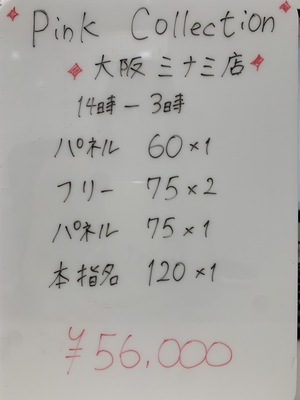 Pink Collection
大阪ミナミ店
14時ー3時
パネル 60×1
フリー 75×2
パネル 75×1
本指名 120×1
¥56.000